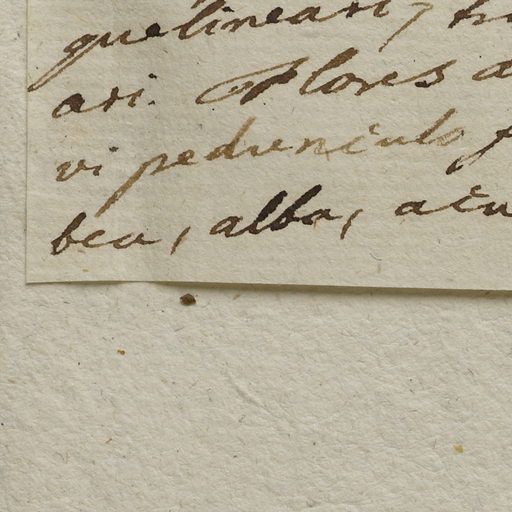 quelineari, tri
ari. Flores a
vi pedunculo f
bea, alba, acu